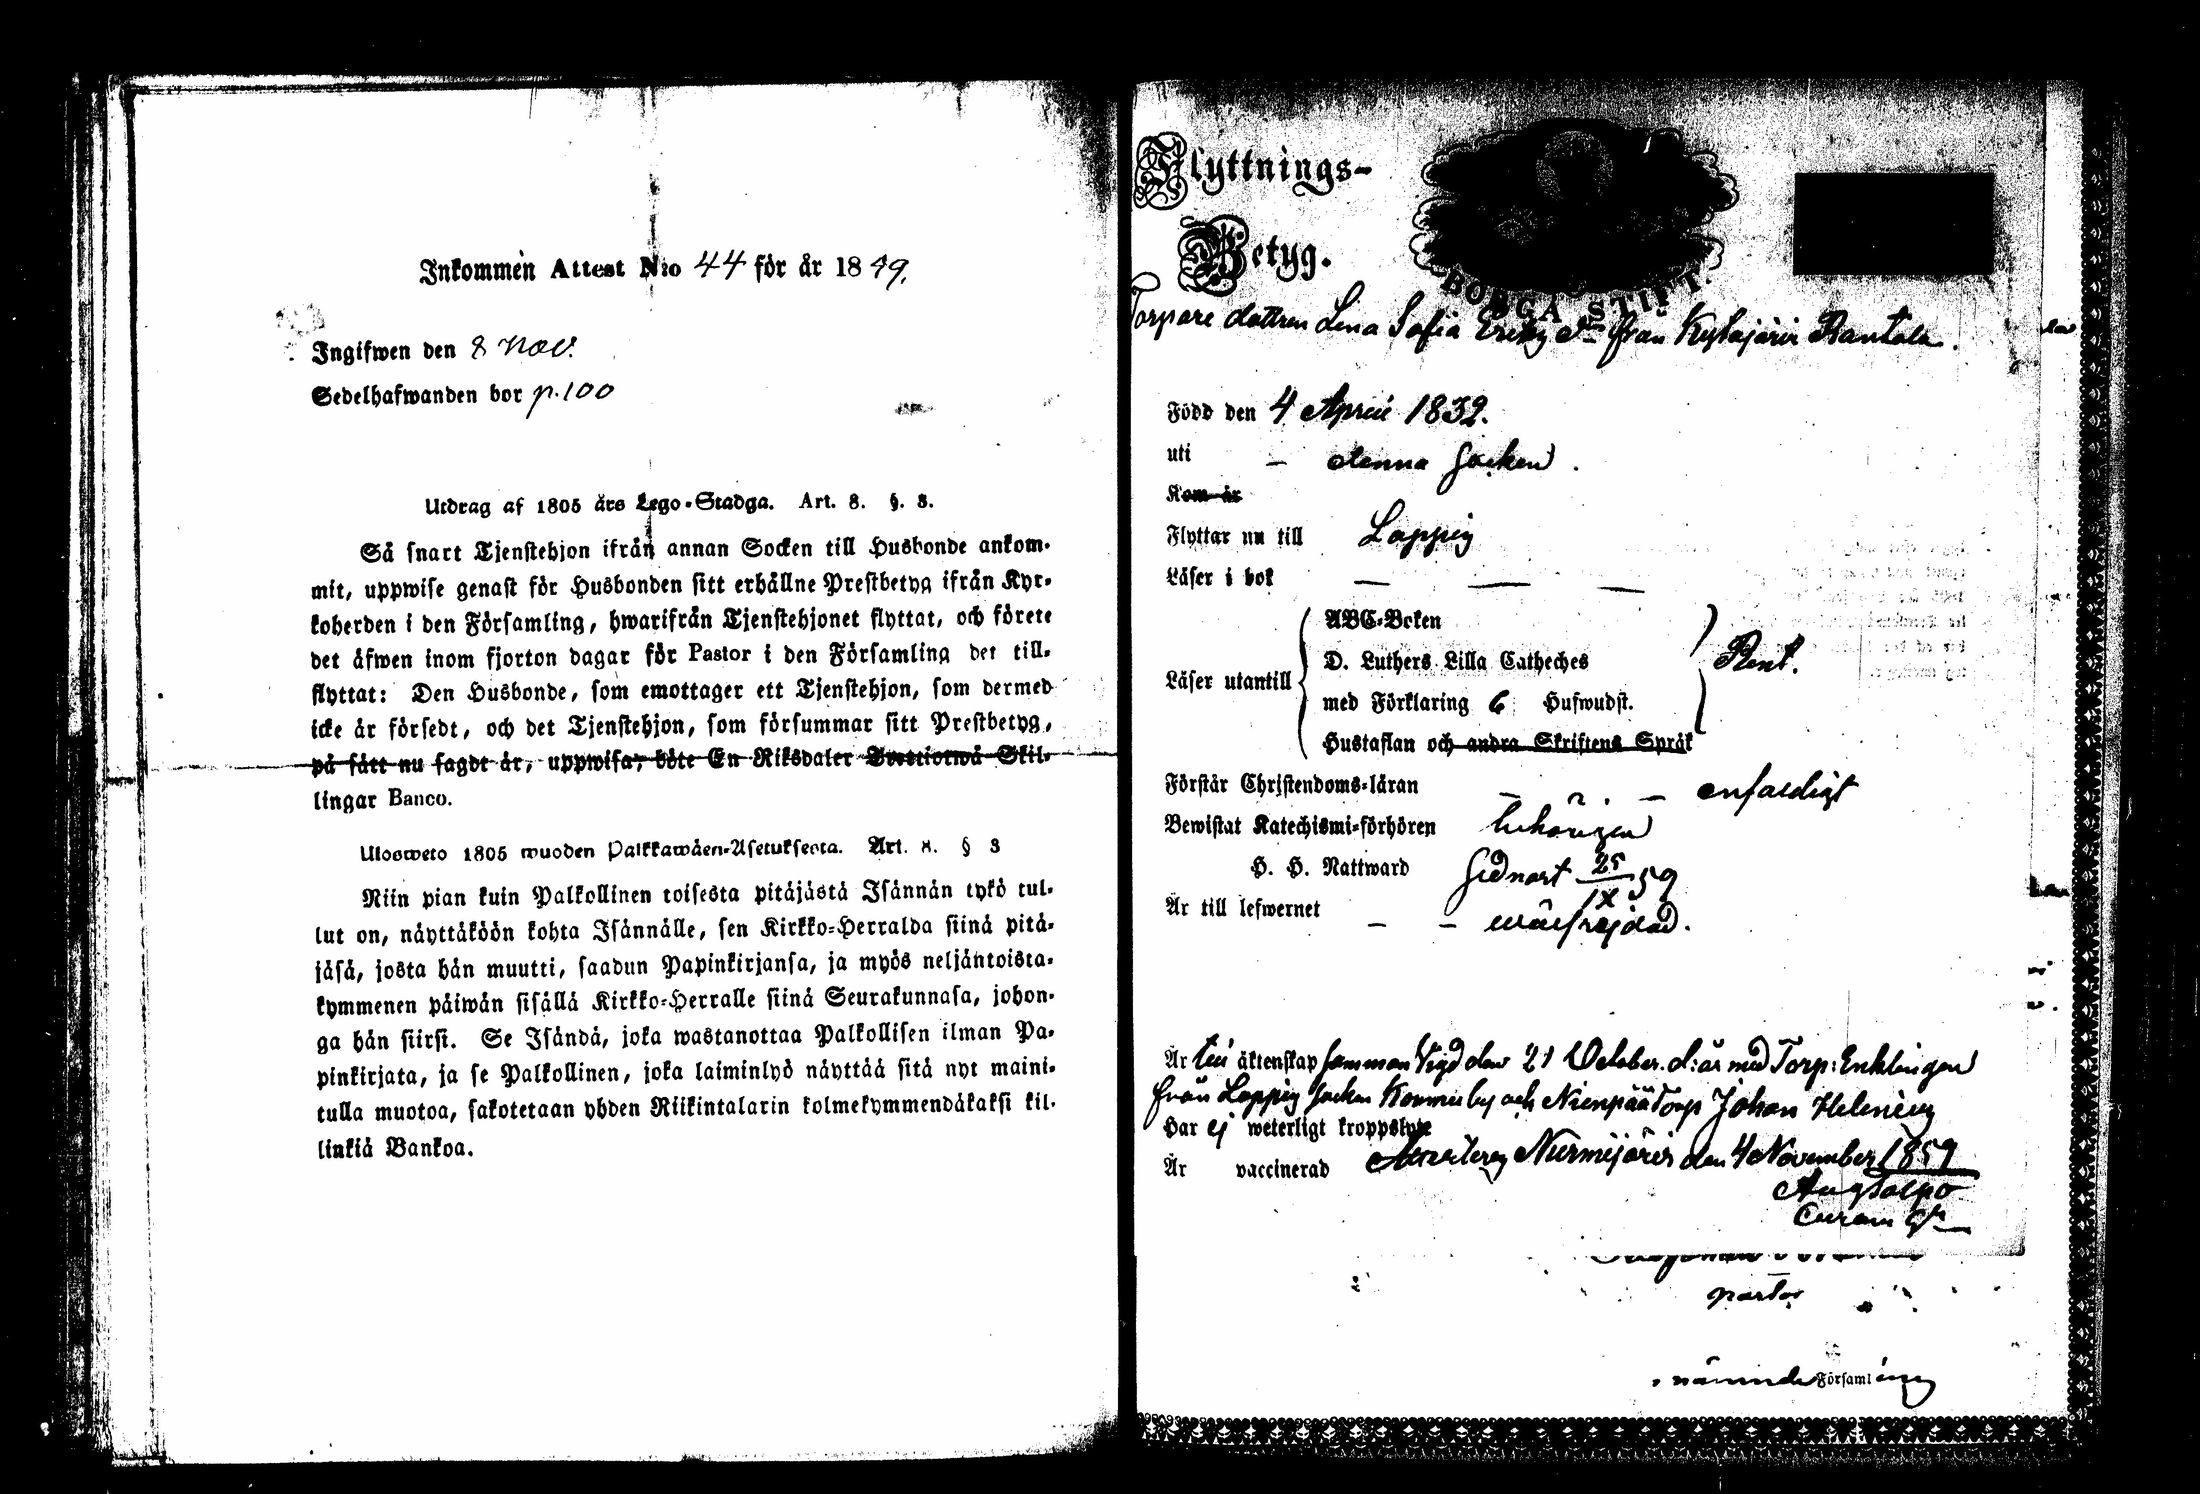 Inkommen Attest N:o 44 för år 1859.
Ingifwen den 8 Nov.
Sedelhafwanden bor p. 100
Utdrag af 1805 års Lego-Stadga. Art. 8. §. 3.
Så snart Tjenstehjon ifrån annan Socken till Husbonde ankom-
mit, uppwise genast för Husbonden sitt erhållne Prestbetyg ifrån Kyr-
koherden i den Församling, hwarifrån Tjenstehjonet flyttat, och förete
det äfwen inom fjorton dagar för Pastor i den Församling det till-
flyttat: Den Husbonde, som emottager ett Tjenstehjon, som dermed
icke är försedt, och det Tjenstehjon, som försummar sitt Prestbetyg,
på sätt nu sagdt är, uppwisa, böte En Riksdaler Trettiotwå Skil-
lingar Banco.
Ulosweto 1805 wuoden Palkkawäen-Asetuksesta. Art. 8. § 3
Niin pian kuin Palkollinen toisesta pitäjästä Isännän tykö tul-
lut on, näyttäköön kohta Isännälle, sen Kirkko-Herralda siinä pitä-
jäsä, josta hän muutti, saadun Papinkirjansa, ja myös neljäntoista-
kymmenen päiwän sisällä Kirkko-Herralle siinä Seurakunnasa, johon-
ga hän siirsi. Se Isändä, joka wastanottaa Palkollisen ilman Pa-
pinkirjata, ja se Palkollinen, joka laiminlyö näyttää sitä nyt maini-
tulla muotoa, sakotetaan yhden Riikintalarin kolmekymmendäkaksi kil-
linkiä Bankoa.
Flyttnings-
Betyg.
BORGÅ STIFT.
Torpare dottren Lina Sofia Ericsd:r från Kytäjärvi Rantala.
Född den 4 April 1832.
uti - denna Socken.
Kom år
Flyttar nu till Loppis
Läser i bok — — —
Läser utantill
ABC-Boken
D. Luthers Lilla Catheches
med Förklaring 6 Hufwudst.
Hustaflan och andra Skriftens Språk
Rent.
Förstår Christendoms-läran - . - enfaldigt
Bewistat Katechismi-förhören behörigen
H. H. Nattward sednast 25/IX 59
Är till lefwernet - - wälfrejdad.
Är till äktenskap samman Vigd den 21 October d: år med Torp: Enklingen
från Loppis Socken Kormu by och Nienpää Torp Johan Helenius
Har ej weterligt kroppslyte
Är vaccinerad Nurmijärvi den 4 November 1859
pastor
Församling